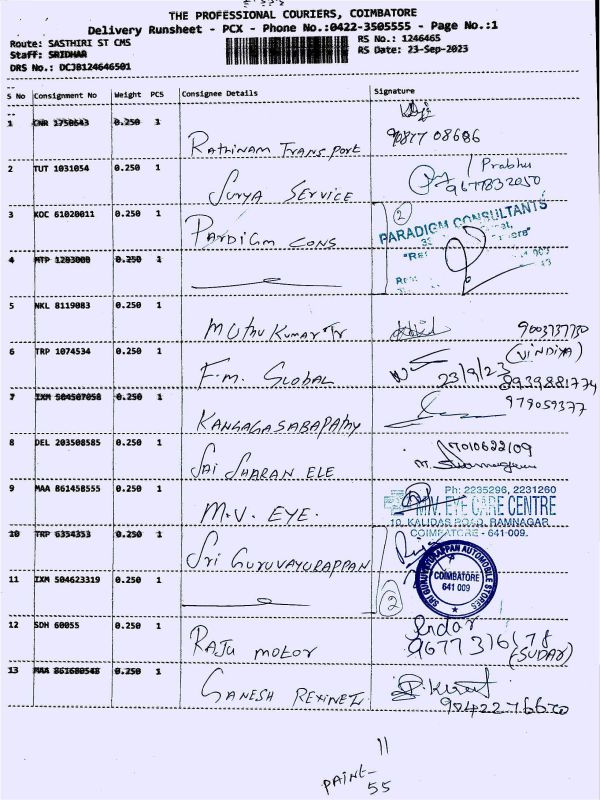 THE PROFESSIONAL COURIERS, COIMBATORE
Delivery Runsheet - PCX - Phone No.:0422-3505555 - Page No.:1
Route: SASTHIRI ST CMS RS No.: 1246465
Staff: SRIDHAR RS Date: 23-Sep-2023
DRS No.: DCJB124646501
S No Consignment No Weight PCS Consignee Details Signature
1 CNR 1750643 0.250 1 Rathinam Transport
2 TUT 1031054 0.250 1 Surya Service Prabhu
9677832050
3 KOC 61020011 0.250 1 Pardigm cons 2 PARADIGM CONSULTANTS
4 MTP 1203000 0.250 1
5 NKL 8119083 0.250 1 Muthu Kumar Tr 9003737730
(VINDIYA)
6 TRP 1074534 0.250 1 F.M. Global 23/9/23 8939881774
7 IXM 504507058 0.250 1 Kanagasabapathy 979059377
8 DEL 203508585 0.250 1 Sai Sharan Ele 7010622109
9 MAA 861458555 0.250 1 M.V. EYE. Ph: 2235296, 2231260
M.V. EYE CARE CENTRE
10, KALIDAS ROAD, RAMNAGAR
COIMBATORE - 641 009.
10 TRP 6354353 0.250 1 Sri Guruvayurappan
SRI GURUVAYURAPPAN AUTOMOBILE STORES
COIMBATORE
641 009
11 IXM 504623319 0.250 1 2
12 SDH 60055 0.250 1 Raju motor
9677316178
(SUDAR)
13 MAA 861680548 0.250 1 Ganesh Rexine
11
55